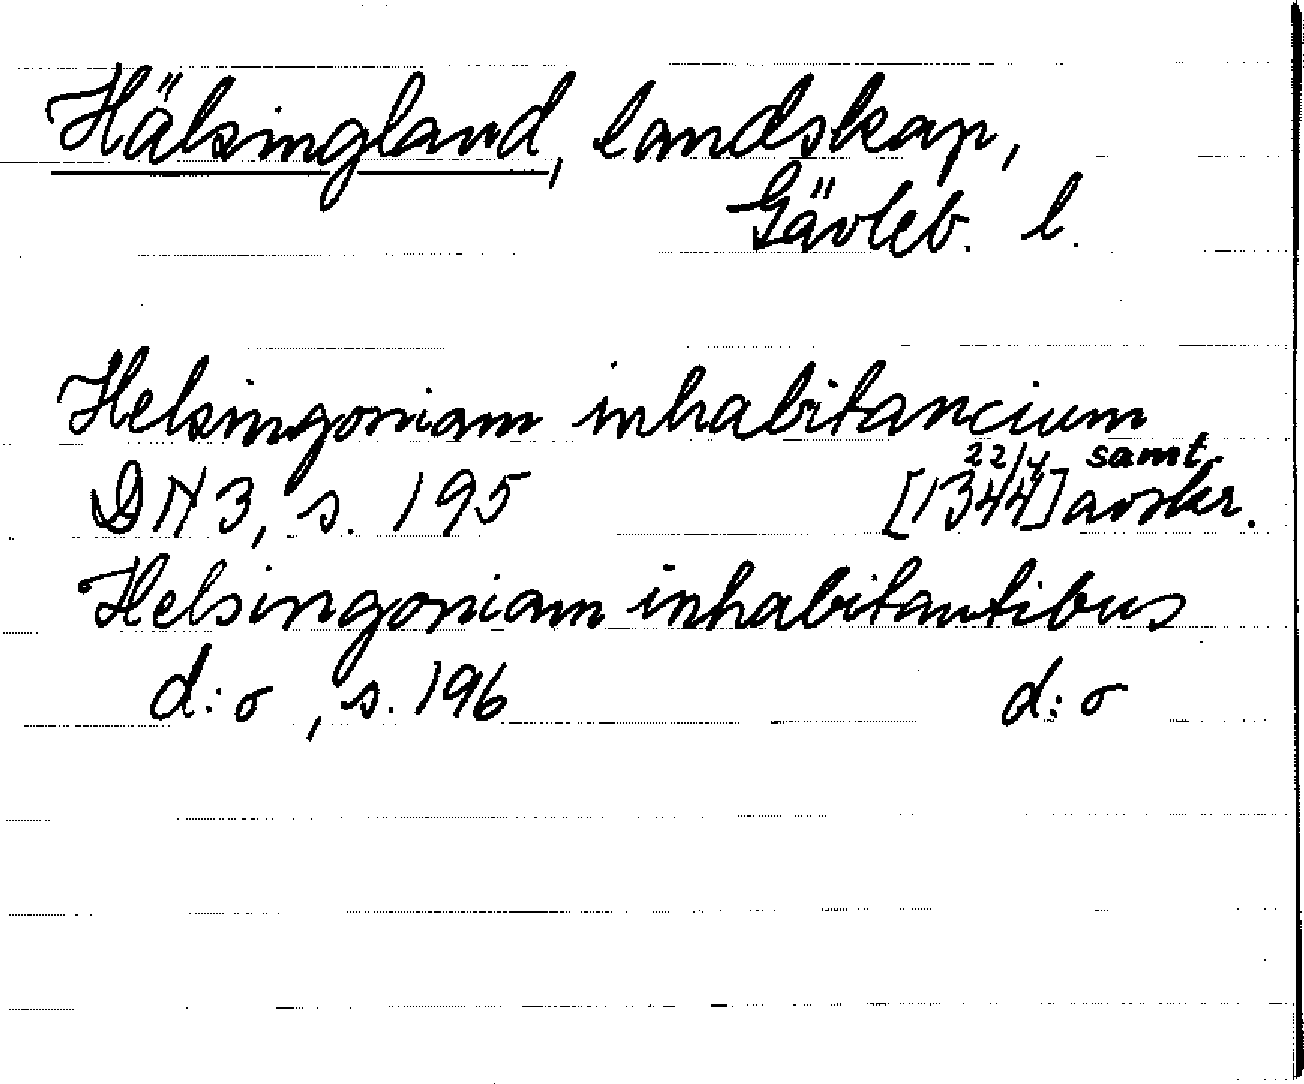 Hälsingland, landskap,
Gävleb. l.
Helsingoniam inhabitancium
22/4 samt.
DN 3, s. 195 [1344] avskr.
Helsingoniam inhabitantibus
d:o, s. 196 d:o